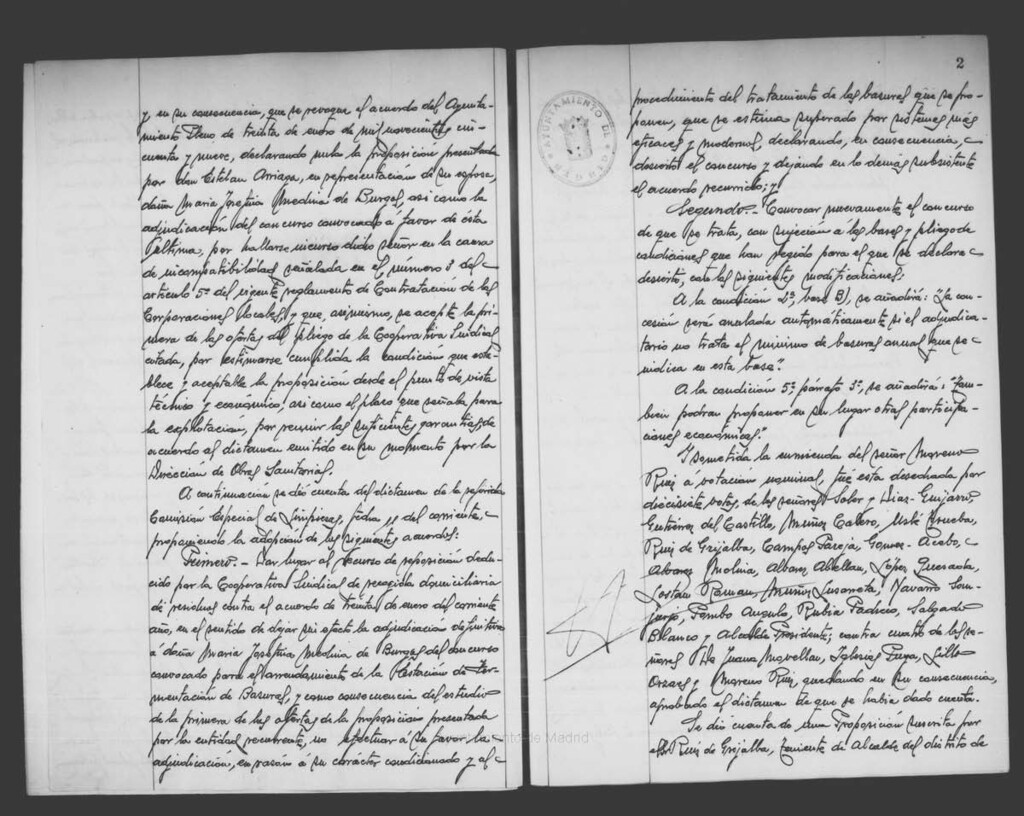 y en su consecuencia, que se revoque el acuerdo del Ayunta-
miento Pleno de treinta de enero de mil novecientos cin-
cuenta y nueve, declarando nula la proposición presentada
por don Esteban Arriaga, en representación de su esposa,
doña Maria Josefina Medina de Burgos, asi como la
adjudicación del concurso convocado á favor de ésta
última, por hallarse incurso dicho señor en la causa
de incompatibilidad señalada en el número 3 del
articulo 5º del vigente reglamento de Contratación de las
Corporaciones locales, y que, asimismo, se acepte la pri-
mera de las ofertas del pliego de la Cooperativa Sindical
citada, por estimarse cumplida la condición que esta-
blece y aceptable la proposición desde el punto de vista
técnico y económico, asi como el plazo que señala para
la explotación, por reunir las suficientes garantias, de
acuerdo al dictamen emitido en su momento por la
Dirección de Obras Sanitarias.
A continuación se dió cuenta del dictamen de la referida
Comisión Especial de Limpiezas, fecha 11 del corriente,
proponiendo la adopción de los siguientes acuerdos:
Primero.- Dar lugar al recurso de reposición dedu-
cido por la Cooperativa Sindical de recogida domiciliaria
de residuos contra el acuerdo de treinta de enero del corriente
año, en el sentido de dejar sin efecto la adjudicación definitiva
á doña Maria Josefina Medina de Burgos del concurso
convocado para el arrendamiento de la Estación de Fer-
mentación de Basuras, y como consecuencia del estudio
de la primera de las ofertas de la proposición presentada
por la entidad recurrente, no efectuar á su favor la
adjudicación, en razón a su carácter condicionado y al
2
AYUNTAMIENTO DE MADRID
procedimiento del tratamiento de las basuras que se pro-
ponen, que se estima superado por sistemas más
eficaces y modernos, declarando, en consecuencia,
desierto el concurso y dejando en lo demás subsistente
el acuerdo recurrido; y
Segundo.- Convocar nuevamente el concurso
de que se trata, con sujeción a las bases y pliego de
condiciones que han regido para el que se declara
desierto, con las siguientes modificaciones:
A la condición 2ª, base B), se añadirá: "La con-
cesión será anulada automáticamente si el adjudica-
tario no trata el minimo de basuras anual que se
indica en esta base".
A la condición 5ª párrafo 3º, se añadirá: "Tam-
bien podrán proponer en su lugar otras participa-
ciones económicas".
Sometida la enmienda del señor Moreno
Ruiz a votación nominal, fué esta desechada por
diecisiete votos, de los señores Soler y Diaz-Guijarro,
Gutiérrez del Castillo, Muñoz Calero, Urueba,
Ruiz de Grijalba, Campos Pareja, Gomez-Acebo,
Alvarez Molina, Albarez Abellan, López Quesada,
Lostau Roman, Muñoz Lusarreta, Navarro San-
jurjo, Pombo Angulo, Rubia Pacheco, Salgado
Blanco y Alcalde Presidente; contra cuatro de los se-
ñores De Juana Movellan, Iglesias Puga, Lillo
Orzaes y Moreno Ruiz, quedando en su consecuencia,
aprobado el dictamen de que se habia dado cuenta.
Se dió cuenta de una Proposición suscrita por
el Sr. Ruiz de Grijalba, teniente de Alcalde del distrito de
de Madrid